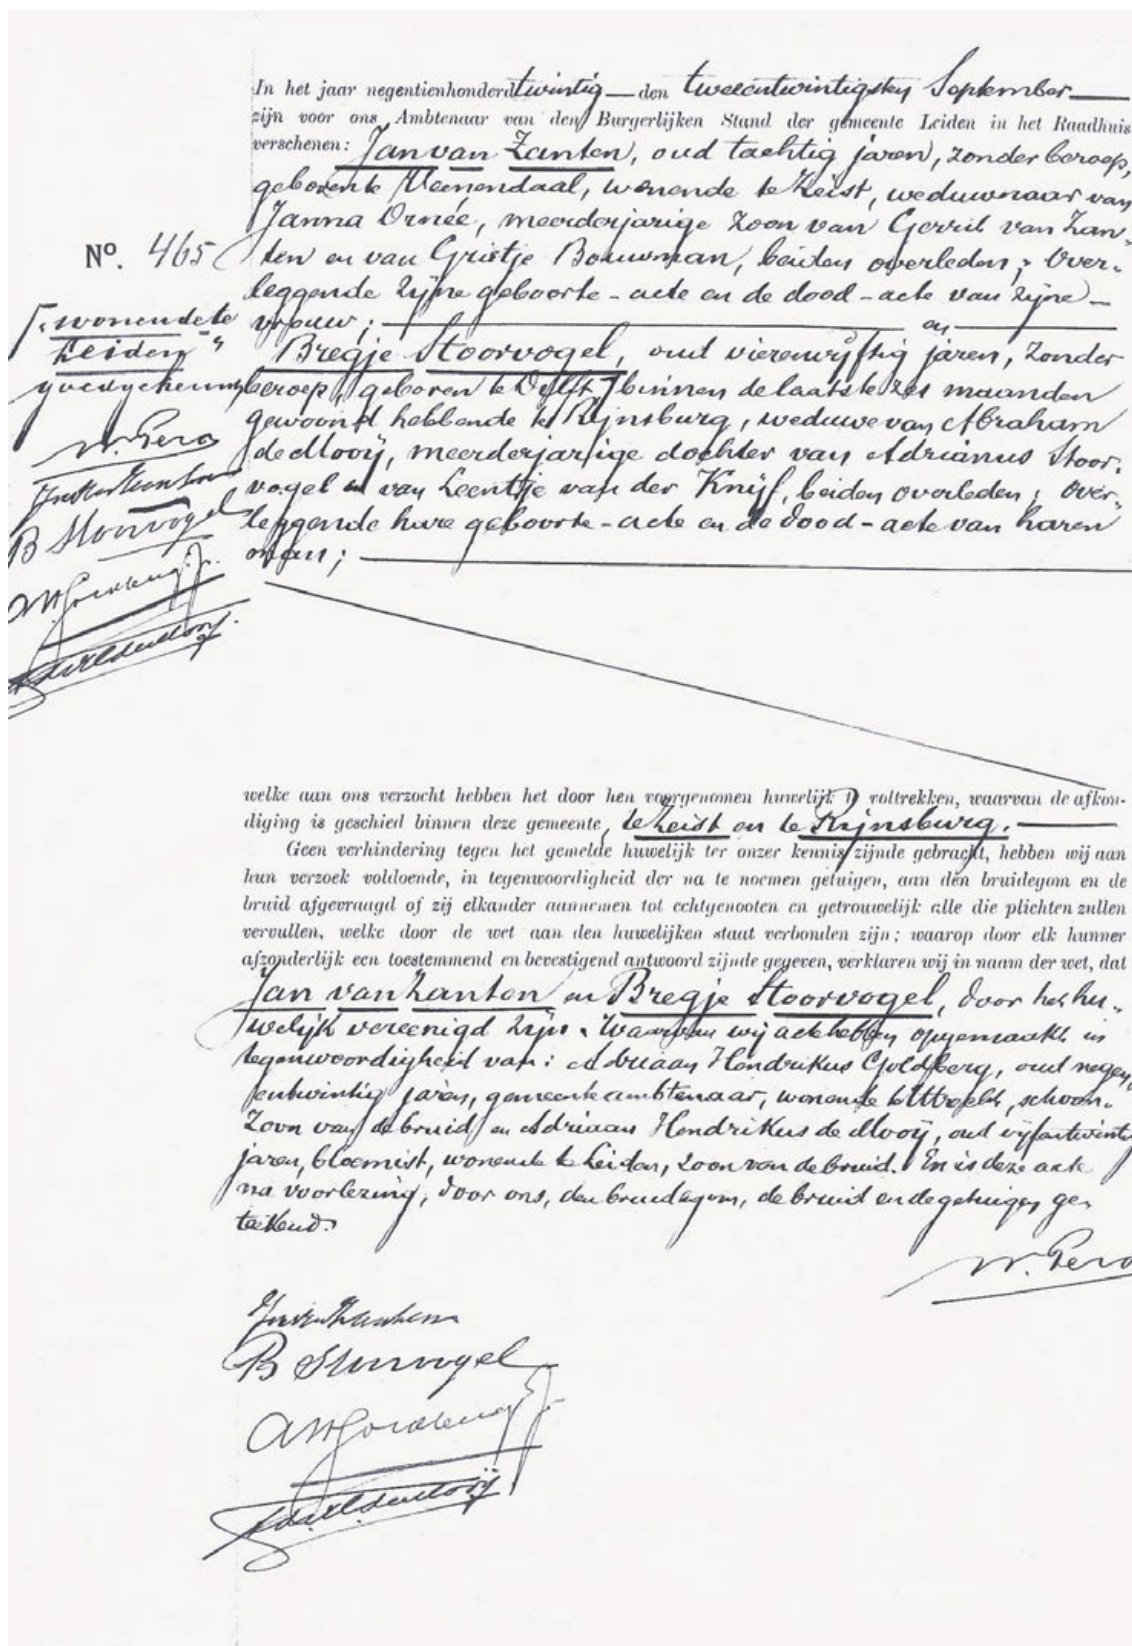 In het jaar negentienhonderd twintig den tweeentwintigsten September
zijn voor ons Ambtenaar van den Burgerlijken Stand der gemeente Leiden in het Raadhuis
verschenen: Jan van Zanten, oud tachtig jaren, zonder beroep,
geboren te Veenendaal, wonende te Zeist, weduwnaar van
Janna Ornée, meerderjarige zoon van Gerrit van Zan-
No. 465 ten en van Grietje Bouwman, beiden overleden; over-
leggende zijne geboorte-acte en de dood-acte van zijne
vrouw; en
"wonende te
Leiden"
goedgekeurd
Bregje Stoorvogel, oud vierenvijftig jaren, zonder
beroep, geboren te Delft, binnen de laatste zes maanden
gewoond hebbende te Rijnsburg, weduwe van Abraham
de Mooij, meerderjarige dochter van Adrianus Stoor-
vogel en van Leentje van der Knijf, beiden overleden; over-
leggende hare geboorte-acte en de dood-acte van haren
man;
B Stoorvogel
welke aan ons verzocht hebben het door hen voorgenomen huwelijk te voltrekken, waarvan de afkon-
diging is geschied binnen deze gemeente, te Zeist en te Rijnsburg.
Geen verhindering tegen het gemelde huwelijk ter onzer kennis zijnde gebracht, hebben wij aan
hun verzoek voldoende, in tegenwoordigheid der na te noemen getuigen, aan den bruidegom en de
bruid afgevraagd of zij elkander aannemen tot echtgenooten en getrouwelijk alle die plichten zullen
vervullen, welke door de wet aan den huwelijken staat verbonden zijn; waarop door elk hunner
afzonderlijk een toestemmend en bevestigend antwoord zijnde gegeven, verklaren wij in naam der wet, dat
Jan van Zanten en Bregje Stoorvogel, door het hu-
welijk vereenigd zijn. Waarvan wij acte hebben opgemaakt in
tegenwoordigheid van: Adriaan Hendrikus Goldberg, oud negen-
entwintig jaren, gemeente ambtenaar, wonende te Utrecht, schoon-
zoon van de bruid en Adriaan Hendrikus de Mooij, oud vijfentwintig
jaren, bloemist, wonende te Leiden, zoon van de bruid. En is deze acte
na voorlezing, door ons, den bruidegom, de bruid en de getuigen ge-
teekend.
B Stoorvogel